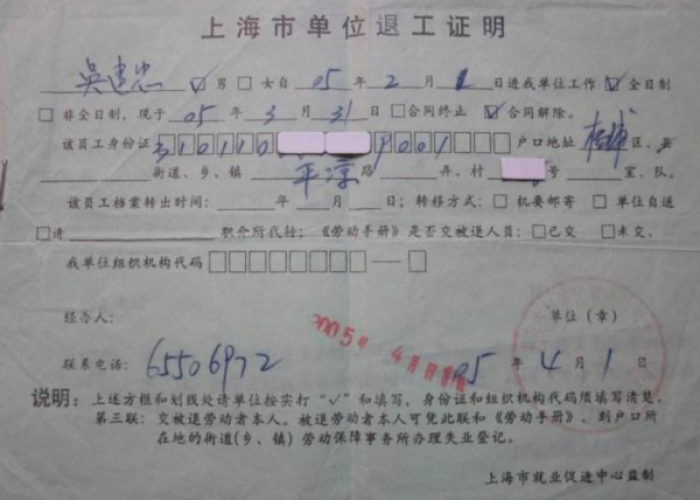 上海市单位退工证明
吴建忠 ☑男 □女自 05 年 2 月 1 日进我单位工作 ☑全日制
□ 非全日制，现于 05 年 3 月 31 日 □合同终止 ☑合同解除。
该员工身份证 310110 9001 户口地址 杨浦 区、县
街道、乡、镇 平凉 路 弄、村 号 室、队。
该员工档案转出时间： 年 月 日；转移方式：□ 机要邮寄 □ 单位自送
□请 职介所代转；《劳动手册》是否交被退人员：□已交 □未交。
我单位组织机构代码□□□□□□□□—□
经办人： 单位（章）
2005年 4月
联系电话：65506972 05 年 4 月 1 日
说明：上述方框和划线处请单位按实打“√”和填写，身份证和组织机构代码须填写清楚。
第三联：交被退劳动者本人，被退劳动者本人可凭此联和《劳动手册》，到户口所
在地的街道(乡、镇）劳动保障事务所办理失业登记。
上海市就业促进中心监制